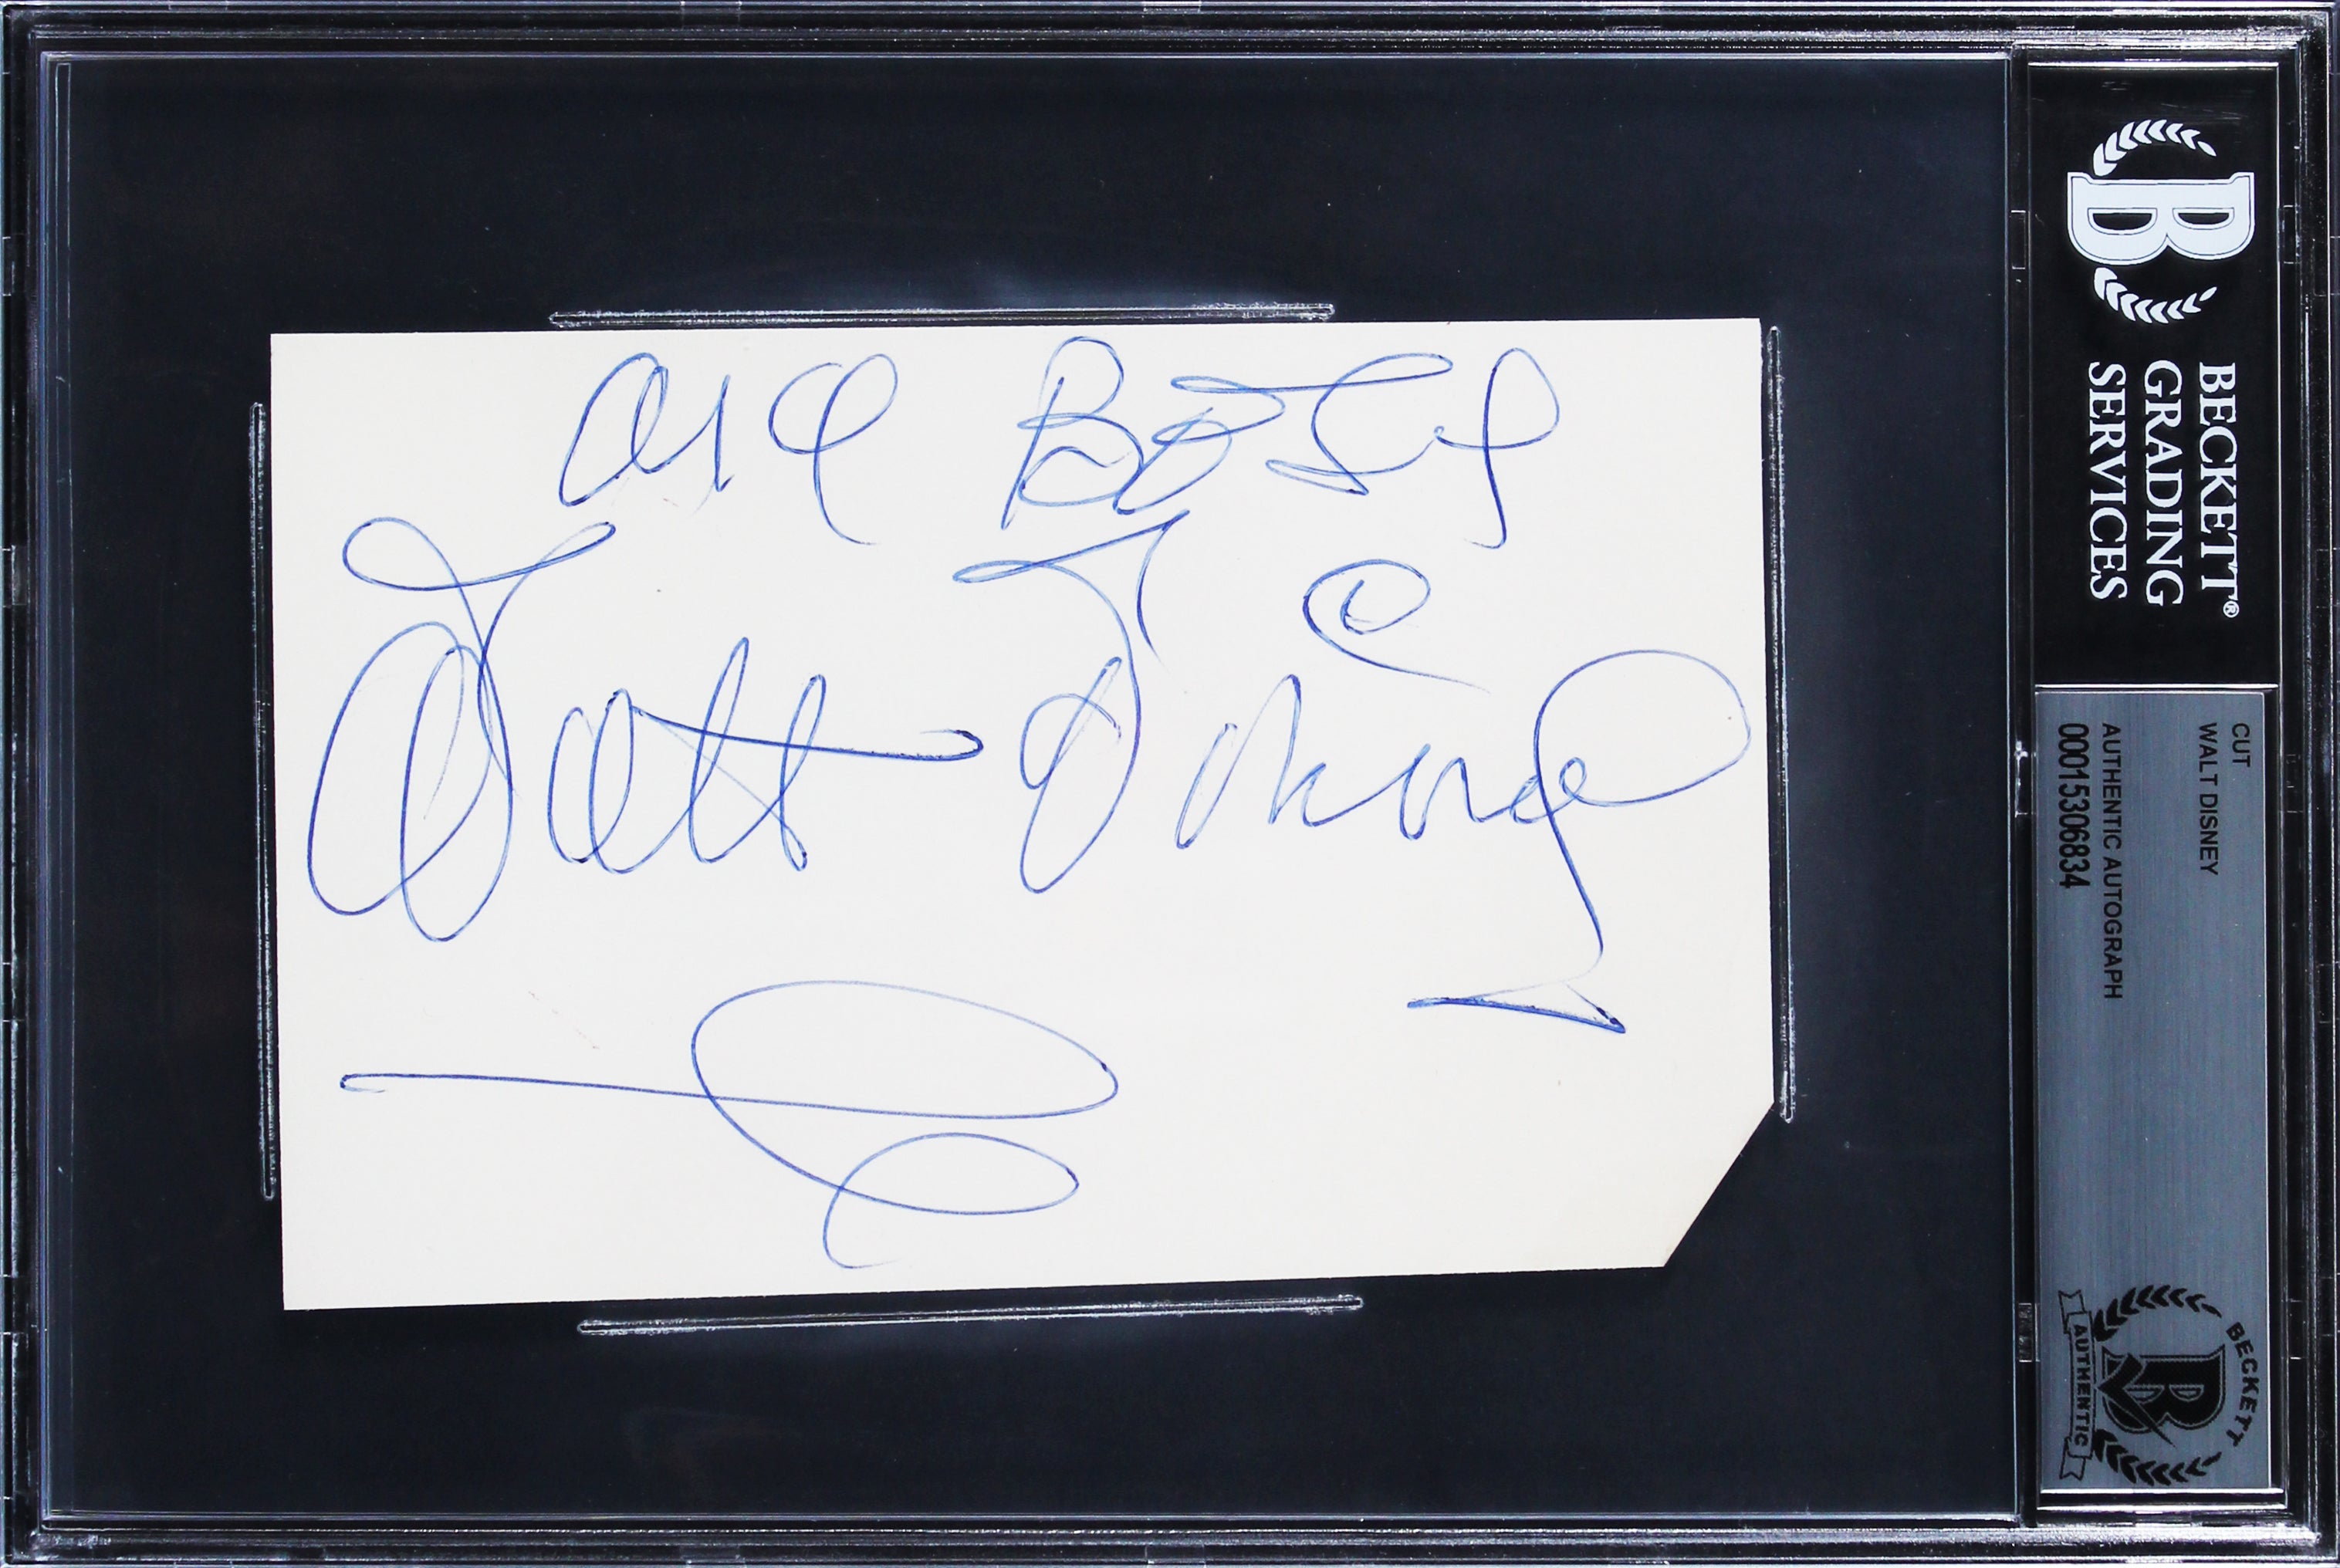 Walt Disney
B
BECKETT®
GRADING
SERVICES
CUT
WALT DISNEY
AUTHENTIC AUTOGRAPH
00015306834
BECKETT
B
AUTHENTIC